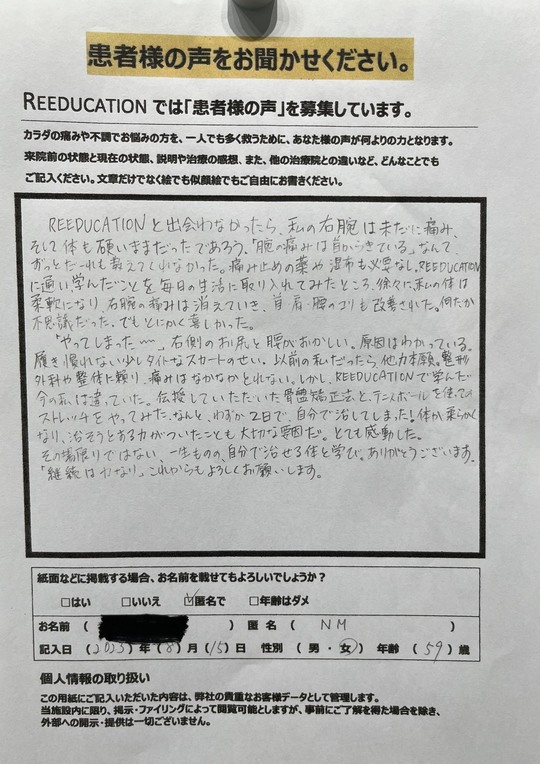 患者様の声をお聞かせください。
REEDUCATION では「患者様の声」を募集しています。
カラダの痛みや不調でお悩みの方を、一人でも多く救うために、あなた様の声が何よりの力となります。
来院前の状態と現在の状態、説明や治療の感想、また、他の治療院との違いなど、どんなことでも
ご記入ください。文章だけでなく絵でも似顔絵でもご自由にお書きください。
REEDUCATIONと出会わなかったら、私の右腕は未だに痛み、
そして体も硬いままだったであろう。「腕の痛みは首からきている」なんて、
ずっとだーれも教えてくれなかった。痛み止めの薬や湿布も必要なし。REEDUCATION
に通い、学んだことを毎日の生活に取り入れてみたところ、徐々に、私の体は
柔軟になり、右腕の痛みは消えていき、首・肩・腰のコリも改善された。何だか
不思議だった。でもとにかく嬉しかった。
「やってしまった〜」右側のお尻と腰がおかしい。原因はわかっている。
履き慣れない少しタイトなスカートのせい。以前の私だったら他力本願。整形
外科や整体に頼り、痛みはなかなかとれない。しかし、REEDUCATIONで学んだ
今の私は違っていた。伝授していただいた骨盤矯正法と、テニスボールを使っての
ストレッチをやってみた。なんと、わずか2日で、自分で治してしまった!体が柔らかく
なり、治そうとする力がついたことも大切な要因だ。とても感動した。
その場限りではない、一生もの、自分で治せる体と学び。ありがとうございます。
「継続は力なり」これからもよろしくお願いします。
紙面などに掲載する場合、お名前を載せてもよろしいでしょうか？
□はい □いいえ ☑匿名で □年齢はダメ
お名前 ( ) 匿名 ( NM )
記入日 (2023) 年 (8) 月 (15) 日 性別 (男・女) 年齢 (59) 歳
個人情報の取り扱い
この用紙にご記入いただいた内容は、弊社の貴重なお客様データとして管理します。
当施設内に限り、掲示・ファイリングによって閲覧可能としますが、事前にご了解を得た場合を除き、
外部への開示・提供は一切ございません。